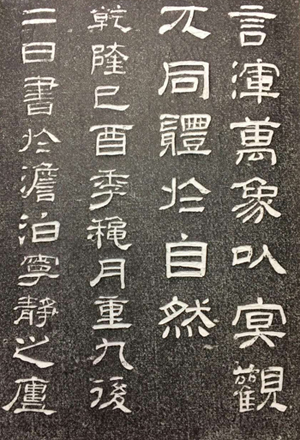 言渾萬象以冥觀
兀同體於自然
乾隆己酉季穐月重九後
二日書於澹泊寧靜之廬